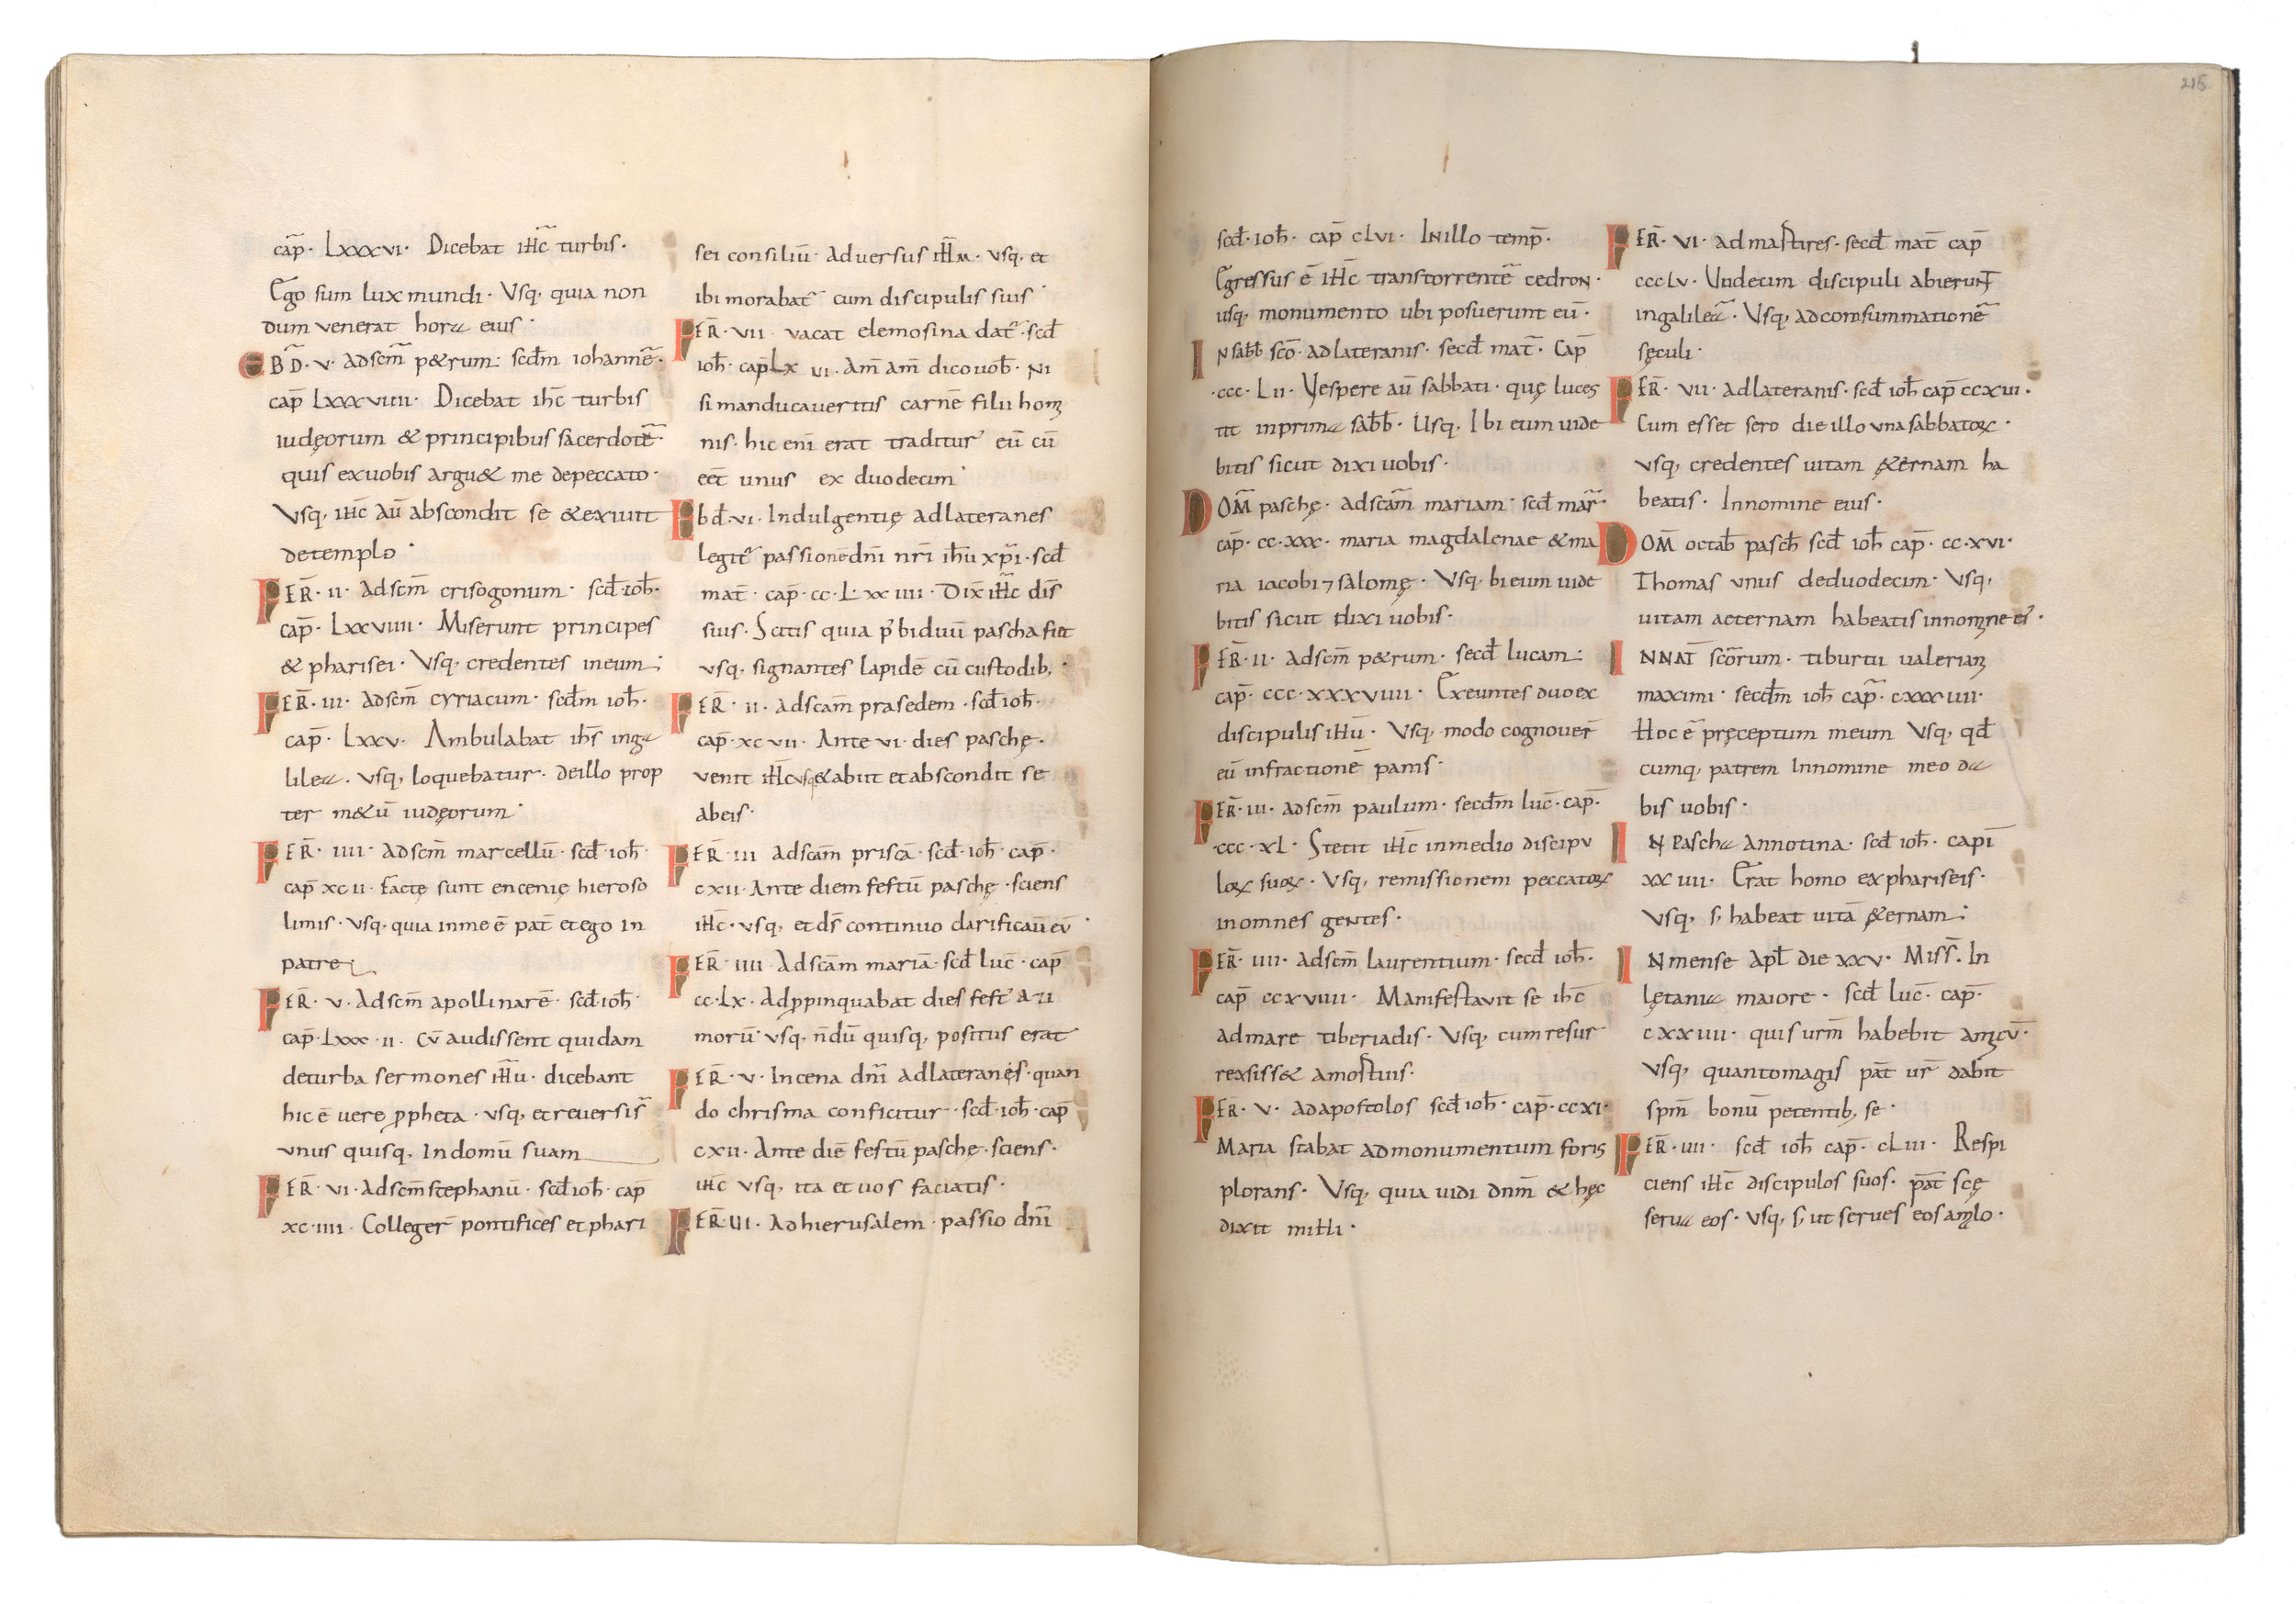 cap̄. Lxxxvi. Dicebat ih̄c turbis.
Ego sum lux mundi. Vsq; quia non
dum venerat hora eius.
EBD̄. v. adscm̄ p&rum: scd̄m iohannē.
cap̄ Lxxxviiii. Dicebat ih̄c turbis
iudęorum & principibus sacerdotē.
quis exuobis argu& me depeccato.
Vsq; ih̄c aū abscondit se &exiuit
detemplo.
FER̄. ii. adscm̄ crisogonum. scd̄.ioh̄.
cap̄. Lxxviiii. Miserunt principes
& pharisei. Vsq; credentes ineum;
FER̄. iii. adscm̄ cyriacum. scd̄m ioh̄.
cap̄. Lxxv. Ambulabat ih̄s inga
lilea. vsq; loquebatur. deillo prop
ter m&ū iudęorum.
FER̄. iiii. adscm̄ marcellū. scd̄. ioh̄.
cap̄ xcii. Factę sunt encenię hieroso
limis. vsq; quia inme ē pat̄ et ego in
patre;
FER̄. v. Adscm̄ apollinarē. scd̄.ioh̄.
cap̄. Lxxx.ii. Cū audissent quidam
deturba sermones ih̄u. dicebant
hic ē uere ꝓpheta. vsq; et reuersis̄
vnus quisq; Indomū suam
FER̄. vi. adscm̄ stephanū. scd̄ ioh̄. cap̄
xc.iiii. Colleger̄ pontifices et phari
sei consiliū adversus ih̄m. vsq; et
ibi morabat̄ cum discipulis suis.
FER̄. vii vacat elemosina dat̄. scd̄
ioh̄. cap̄ Lx vi. Am̄ am̄ dico uob̄. Ni
si manducaveritis carnē filii homi
nis. hic eni erat traditur eū cū
eēt unus ex duodecim.
Ebd̄. vi. Indulgentię adlateranes
legit̄ passionē dn̄i nr̄i ih̄u xp̄i. scd̄
mat̄. cap̄. cc. L.xxiiii. Dix̄ ih̄c dis̄
suis. Scitis quia p̄ biduū pascha fiet
vsq; signantes lapidē cū custodib;.
FER̄. ii. adscām prasedem. scd̄ ioh̄.
cap̄. xcvii. Ante vi. dies paschę.
venit ih̄c vsq; &abiit et abscondit se
abeis.
FER̄. iii adscām priscā. scd̄. ioh̄. cap̄.
cxii. Ante diem festū paschę. sciens
ih̄c. vsq; et ds̄ continuo clarificaū eū.
FER̄. iiii. Adscām mariā. scd̄ luc̄. cap̄
cc.Lx. Adꝓpinquabat dies fest̄ azi
morū. vsq; n̄dū quisq; positus erat
FER̄. v. In cena dn̄i adlateranes. quan
do chrisma conficitur. scd̄. ioh̄. cap̄
cxii. Ante diē festū paschę. sciens.
ih̄c vsq; ita et uos faciatis.
FER̄. vi. Adhierusalem. passio dn̄i
scd̄. ioh̄. cap̄ cLvi. Inillo temp̄.
Egressus ē ih̄c transtorrentē cedron.
usq; monumento ubi posuerunt eū.
IN sabb̄ scō. adlateranis. secd̄ mat̄. Cap̄
.ccc. Lii. Vespere aū sabbati. quę luces
tit inprima sabb̄. Usq; Ibi eum uide
bitis sicut dixi uobis.
DOM̄ paschę. adscām mariam. scd̄ mar̄.
cap̄. cc.xxx. maria magdalenae & ma
ria iacobi ⁊ salomę. Vsq; bi eum uide
bitis sicut dixi uobis.
FER̄. ii. adscm̄ p&rum. secd̄ lucam:
cap̄. ccc.xxxviiii. Exeuntes duo ex
discipulis ih̄u. Vsq; modo cognouer̄
eū infractionē panis.
FER̄. iii. adscm̄ paulum. secd̄m luc̄. cap̄.
.ccc. xL. Stetit ih̄c inmedio discipu
loꝝ suoꝝ. Vsq; remissionem peccatoꝝ
inomnes gentes.
FER̄. iiii. adscm̄ laurentium. secd̄ ioh̄.
cap̄ ccxviiii. Manifestavit se ih̄c
admare tiberiadis. Vsq; cum resur
rexsiss& amostuis.
FER̄. v. adapostolos scd̄ ioh̄. cap̄. ccxi.
Maria stabat admonumentum foris
plorans. Vsq; quia uidi dn̄m & hęc
dixit mihi.
FER̄. vi. admastires. secd̄ mat̄ cap̄
cccLv. Undecim discipuli abierunt
ingalilea. Vsq; adconsummationē
sęculi.
FER̄. vii. adlateranis. scd̄ ioh̄ cap̄ ccxiii.
Cum esset sero die illo vna sabbatoꝝ.
vsq; credentes uitam ęternam ha
beatis. Innomine eius.
DOM̄ octab̄ pasch̄ scd̄ ioh̄ cap̄. cc.xvi.
Thomas vnus deduodecim. Vsq;
uitam aeternam habeatis innomine ei'.
INNAT̄ scōrum. tiburtii ualeriani
maximi. secd̄m ioh̄ cap̄. cxxxiiii.
Hoc ē pręceptum meum Vsq; qd̄
cumq; patrem Innomine meo da
bis uobis.
IN Pascha annotina. scd̄ ioh̄. capi
xxiiii. Erat homo exphariseis.
Vsq; s; habeat uitā &ernam;
IN mense apl̄ die xxv. Miss̄. In
lętania maiore. scd̄ luc̄. cap̄.
cxxiiii. quis urm̄ habebit amicū.
Vsq; quantomagis pat̄ ur̄ dabit
spm̄ bonū petentib; se.
FER̄. iiii. scd̄ ioh̄ cap̄. cLiii. Respi
ciens ih̄c discipulos suos. pat̄ scę
serua eos. vsq; s; ut serues eos amlo.
215